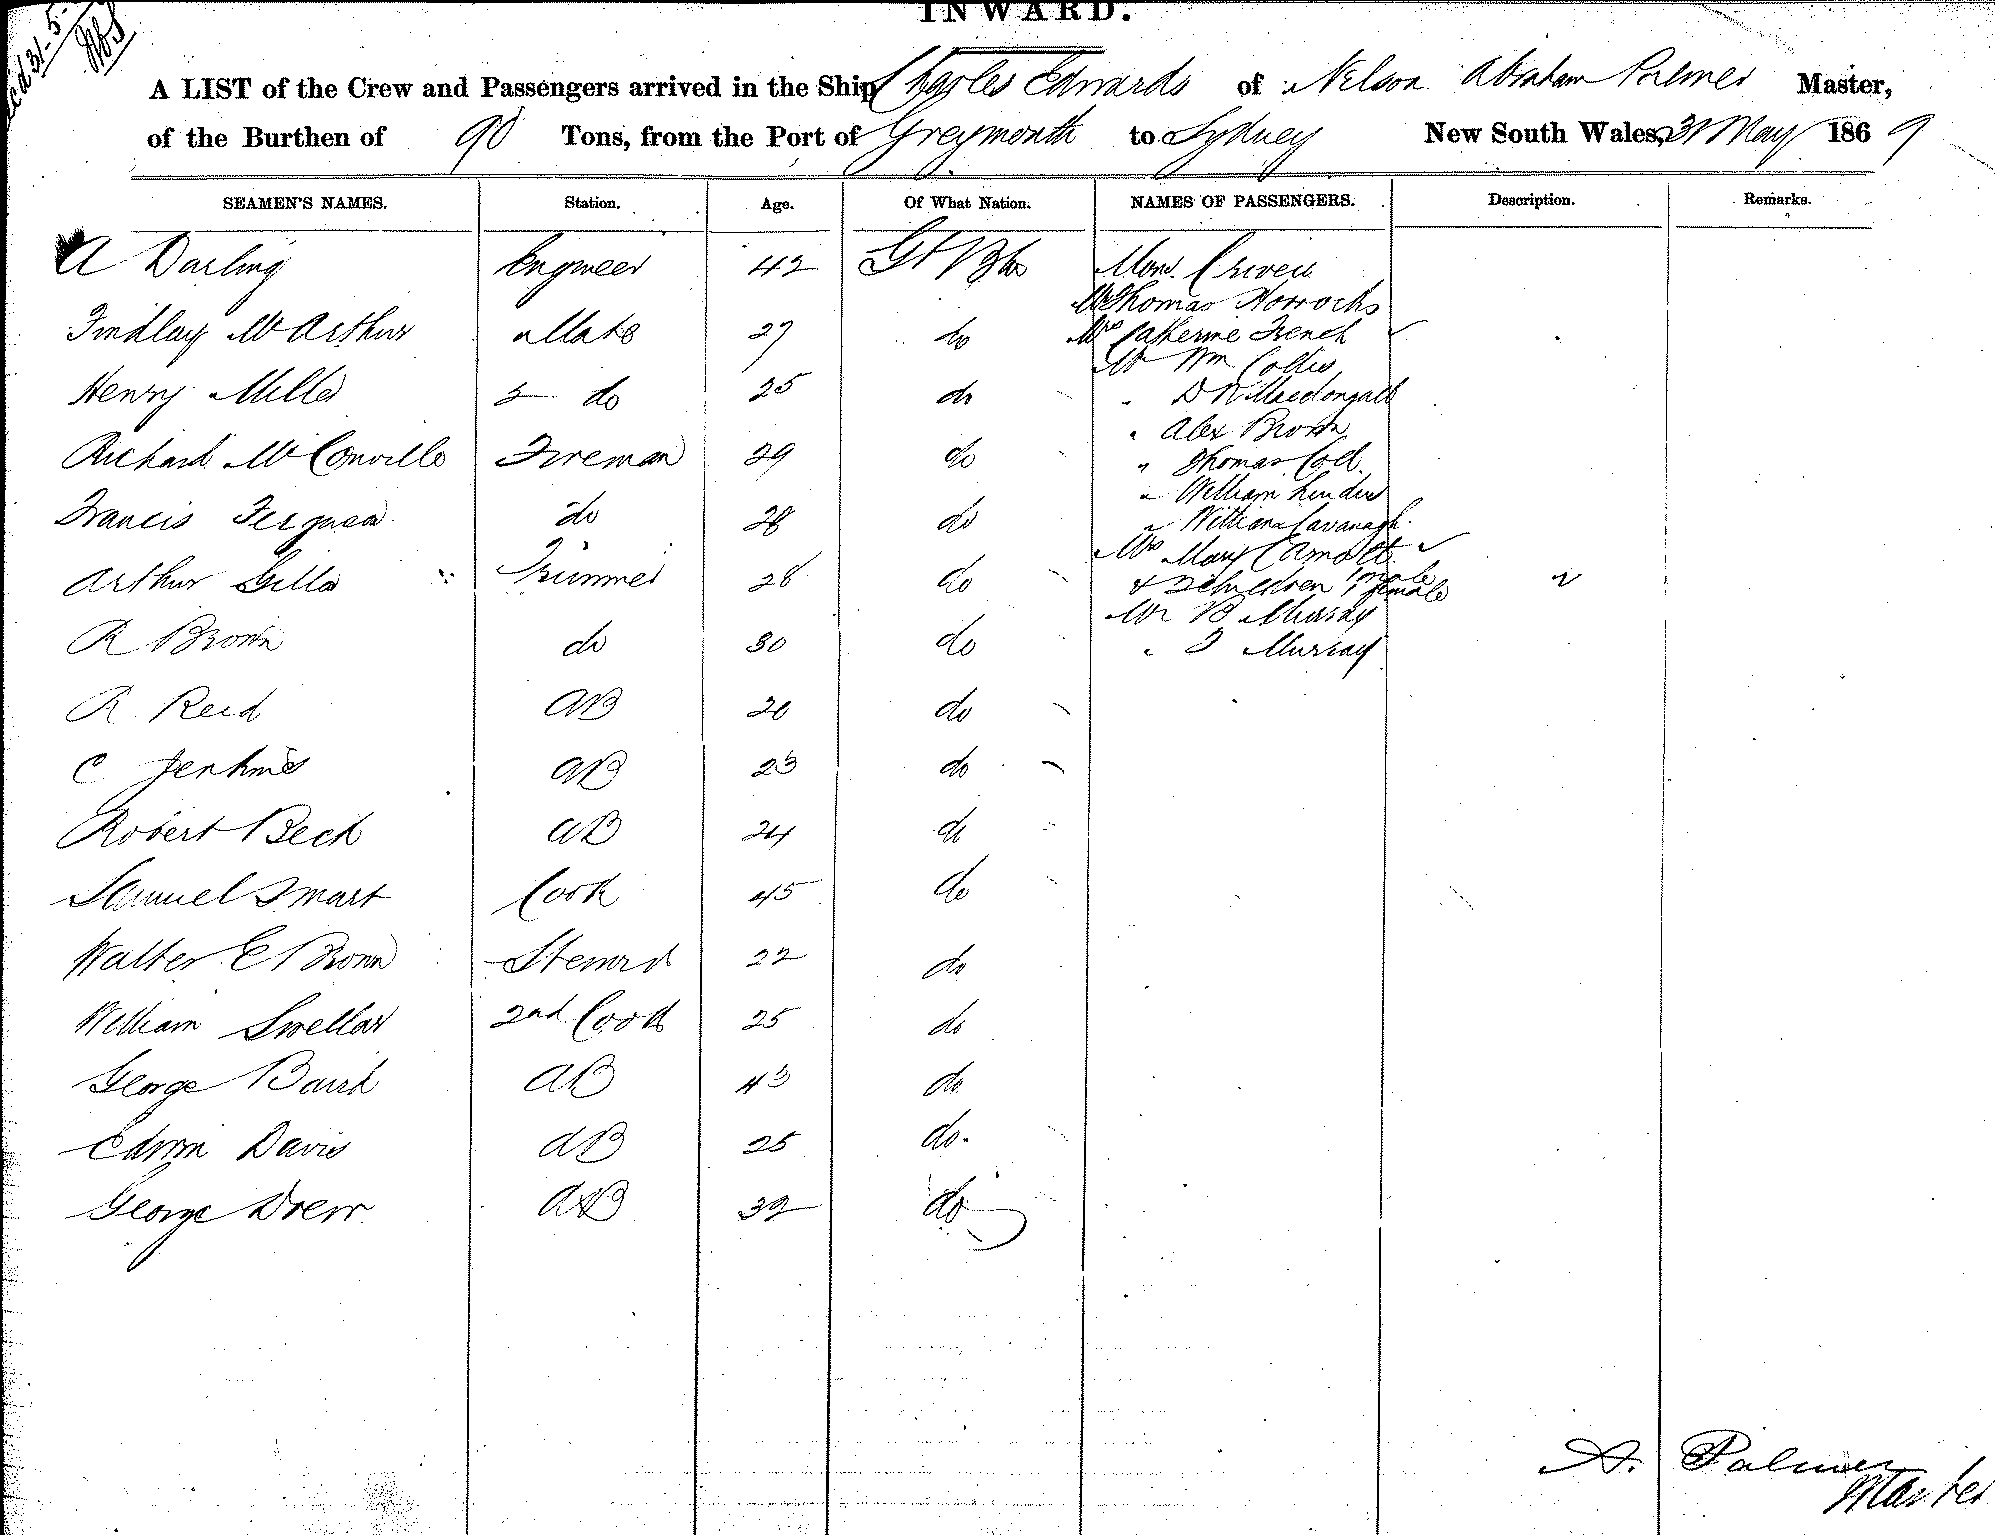 INWARD.
A LIST of the Crew and Passengers arrived in the Ship Charles Edwards of Nelson Abraham Palmer Master,
of the Burthen of 90 Tons, from the Port of Greymouth to Sydney New South Wales, 31 May 1869
SEAMEN'S NAMES. Station. Age. Of What Nation. NAMES OF PASSENGERS. Description. Remarks.
A Darling Engineer 42 Gt Btn Mons.
Mr Thomas Horrocks
Findlay McArthur Mate 27 do Mrs Catherine French
Mr Wm Collis
Henry Miller 2 do 25 do " D R Macdougall
" Alex Brown
Richard McConville Fireman 29 do " Thomas Coll
" William
Francis do 28 do " William Cavanagh
Mrs Mary Camott
Arthur Gills Trimmer 28 do & 2 children 1 male 1 female
Mr B Murray
R Brown do 30 do " J Murray
R Reid AB 20 do
C Jenkins AB 23 do
Robert Beck AB 24 do
Samuel Smart Cook 45 do
Walter E Brown Steward 22 do
William Swellar 2nd Cook 25 do
George Baird AB 43 do
Edwin Davis AB 25 do
George Drew AB 32 do
A. Palmer
Master